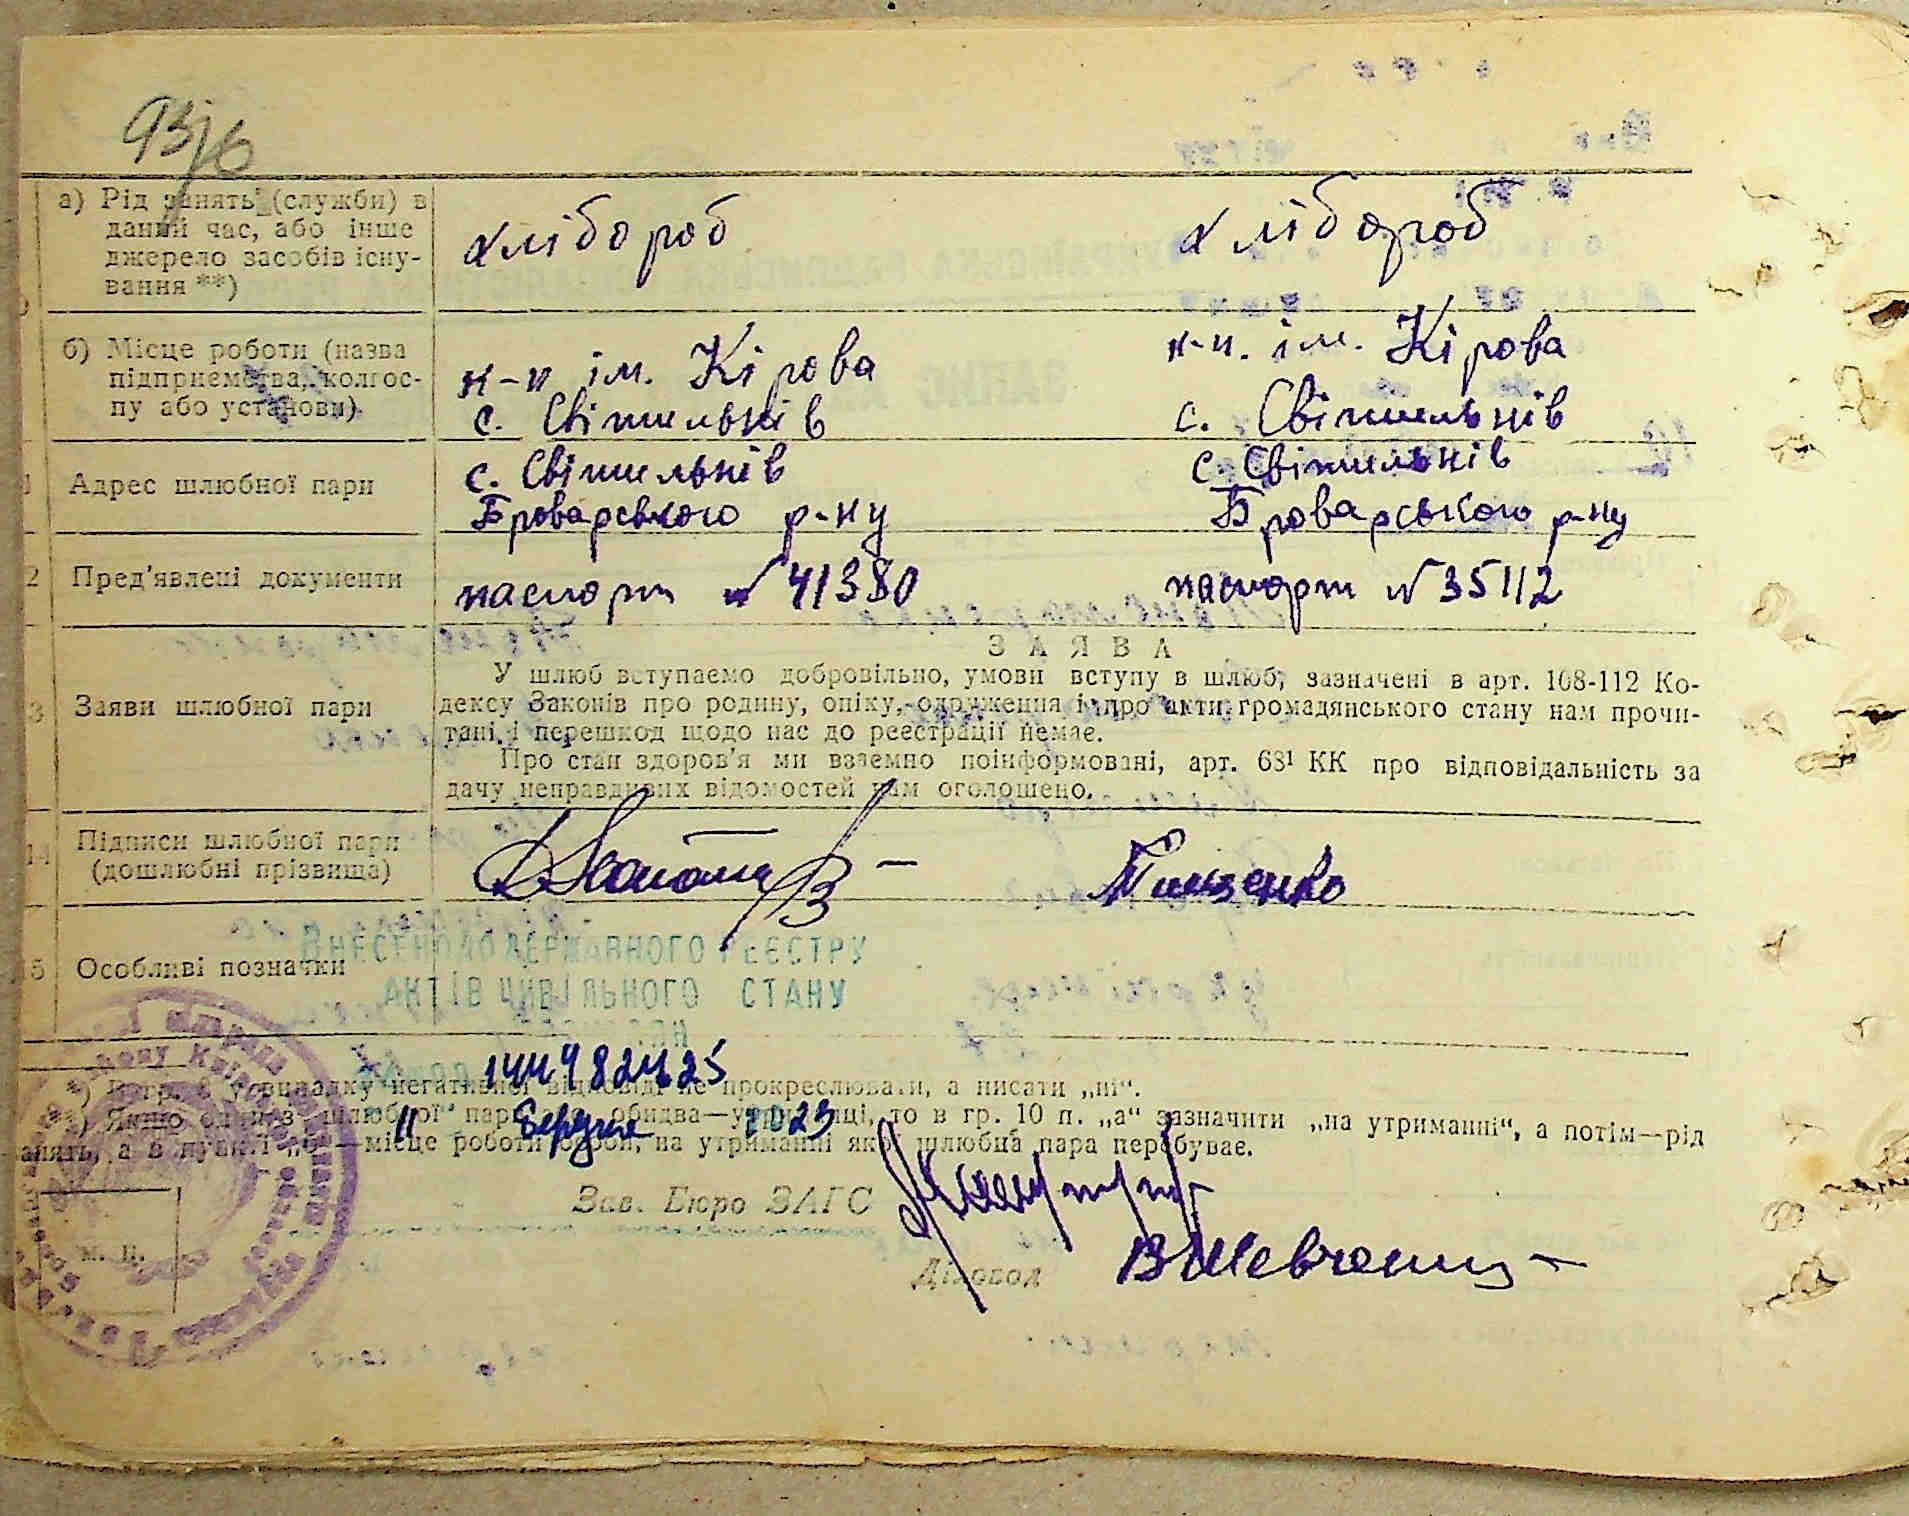 93/6
а) Рід занять (служби) в
даний час, або інше
джерело засобів існу-
вання **)
хлібороб хлібороб
б) Місце роботи (назва
підприємства, колгос-
пу або установи)
к-п ім. Кірова к-п. ім. Кірова
с. Світильнів с. Світильнів
Адрес шлюбної пари
с. Світильнів с. Світильнів
Броварського р-ну Броварського р-ну
2 Пред'явлені документи
паспорт № 41380 паспорт № 35112
3 Заяви шлюбної пари
ЗАЯВА
У шлюб вступаємо добровільно, умови вступу в шлюб, зазначені в арт. 108-112 Ко-
дексу Законів про родину, опіку, одруження і про акти громадянського стану нам прочи-
тані, і перешкод щодо нас до реєстрації немає.
Про стан здоров'я ми взаємно поінформовані, арт. 68¹ КК про відповідальність за
дачу неправдивих відомостей нам оголошено.
14 Підписи шлюбної пари
(дошлюбні прізвища)
Тищенко
15 Особливі позначки
ВНЕСЕНО ДО ДЕРЖАВНОГО РЕЄСТРУ
АКТІВ ЦИВІЛЬНОГО СТАНУ
*) В гр. 8 у випадку негативної відповіді не прокреслювати, а писати „ні“.
**) Якщо один з шлюбної пари, або обидва—утриманці, то в гр. 10 п. „а“ зазначити „на утриманні“, а потім—рід
занять, а в пункті „б“—місце роботи особи, на утриманні якої шлюбна пара перебуває.
11 березня 2023
Зав. Бюро ЗАГС
Діловод ВШевченко
М. П.